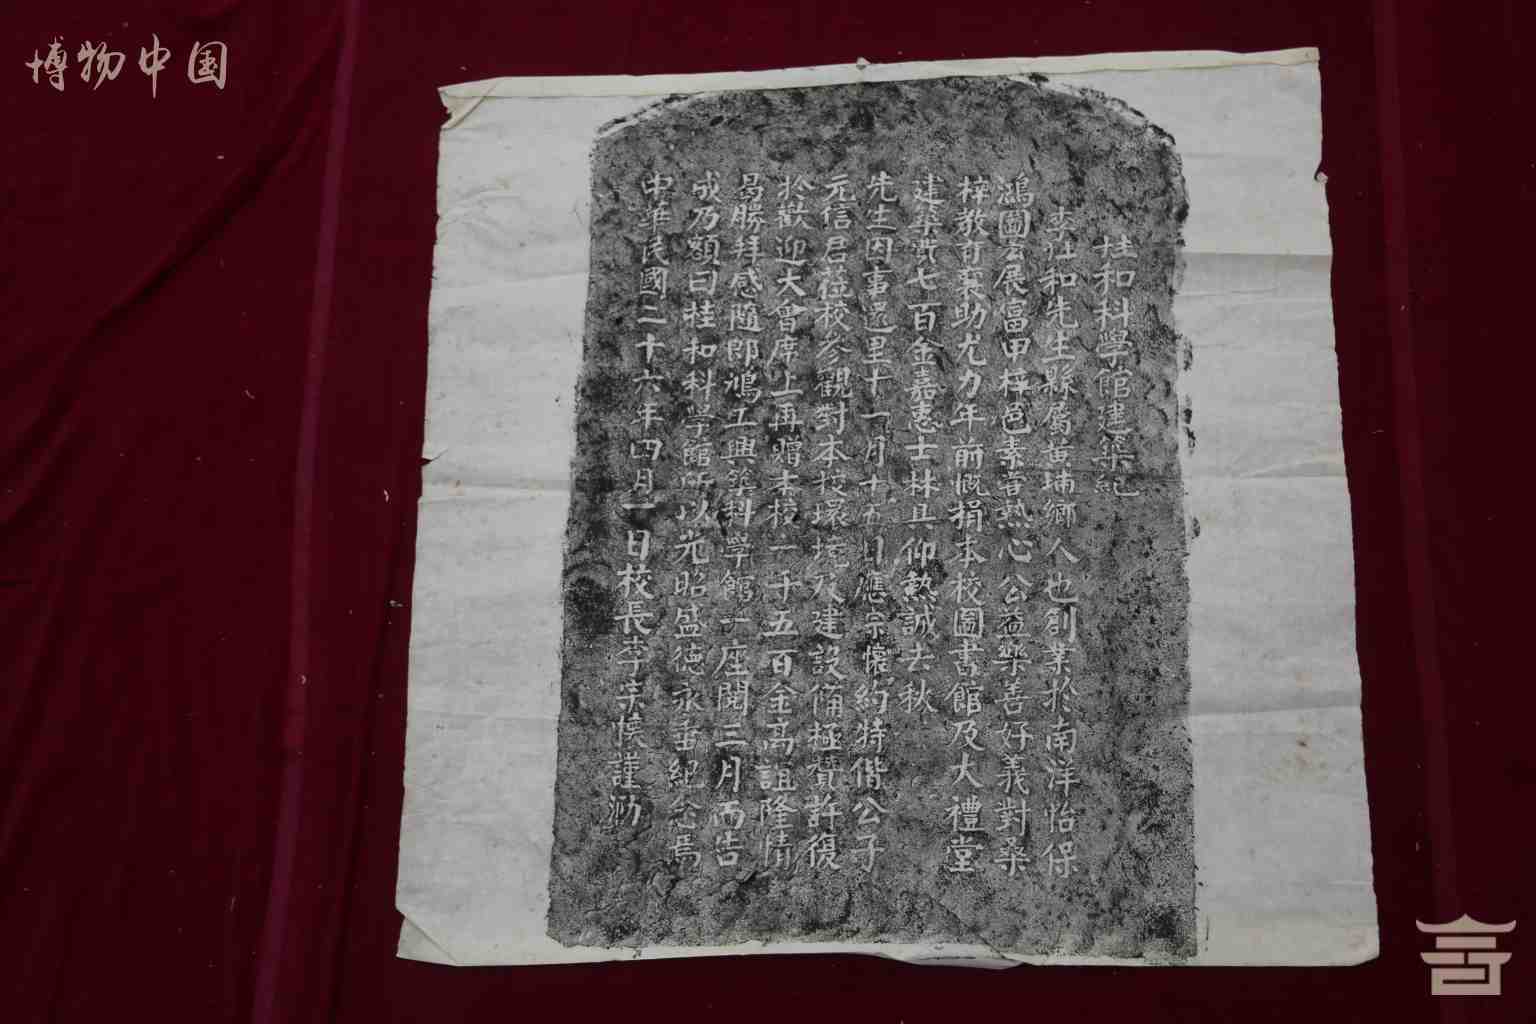 博物中国
桂和科學館建築紀
李桂和先生縣屬黃埔鄉人也創業於南洋怡保
鴻圖宏展富甲梓邑素著熱心公益樂善好義對桑
梓教育襄助尤力年前慨捐本校圖書館及大禮堂
建築費七百金嘉惠士林具仰熱誠去秋
先生因事還里十一月十五日應宗懷約特偕公子
元信君蒞校參觀對本校環境及建設備極贊許復
於歡迎大會席上再贈本校一千五百金高誼隆情
曷勝拜感隨即鴻工興築科學館一座閱三月而告
成乃額曰桂和科學館所以光昭盛德永垂紀念焉
中華民國二十六年四月一日校長李宗懷謹泐